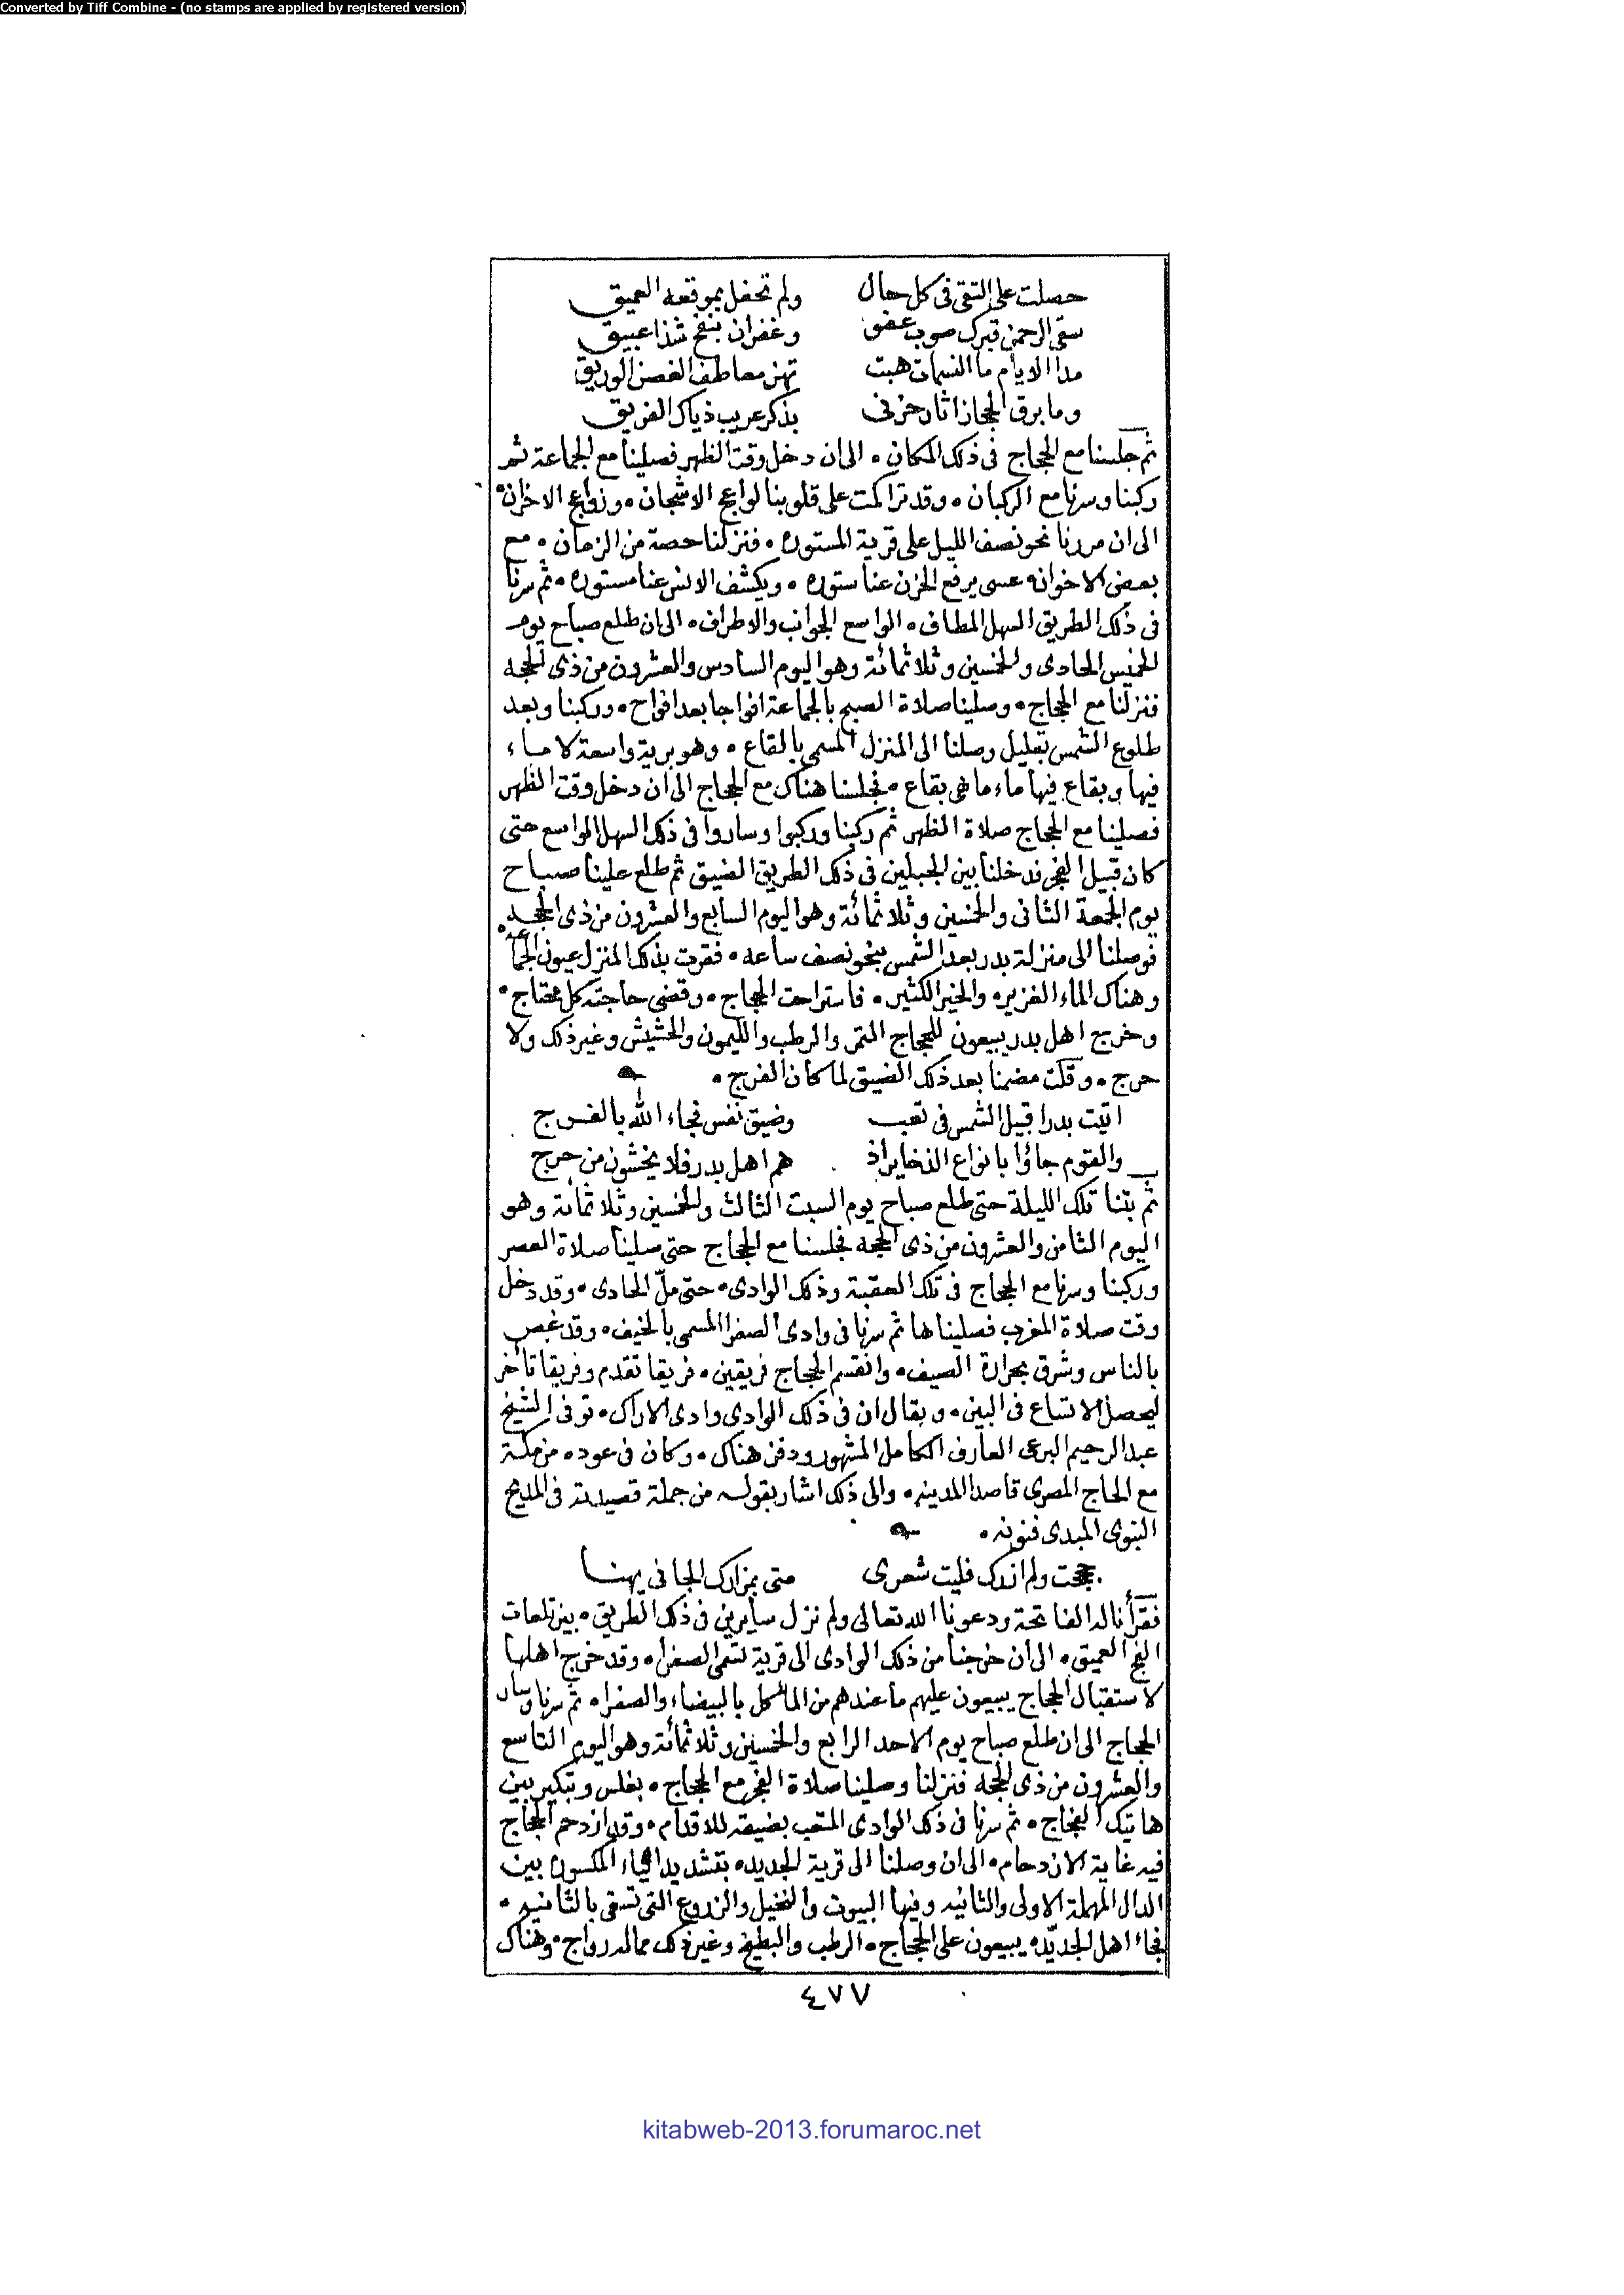 Converted by Tiff Combine - (no stamps are applied by registered version)
حصلت على التقى فى كل حال ولم تحفل بموقعه العميق
سقى الرحمن قبرك صوب عفو وغفران بنفح شذا عبيق
مدا الايام ما النسمات هبت تهز معاطف الغصن الوريق
وما برق الحجاز اثار حزنى بذكر عريب ذياك الفريق
ثم جلسنا مع الحجاج فى ذلك المكان ۰ الى ان دخل وقت الظهر فصلينا مع الجماعة ثم
ركبنا وسرنا مع الركبان ۰ وقد تراكمت على قلوبنا لواعج الاشجان ۰ وزوابع الاحزان ۰
الى ان مررنا نحو نصف الليل على قرية المستوره ۰ فنزلنا حصة من الزمان ۰ مع
بعض الاخوان ۰ عسى يرفع الحزن عنا ستوره ۰ ويكشف الانس عنا مستوره ۰ ثم سرنا
فى ذلك الطريق السهل المطاف ۰ الواسع الجوانب والاطراف ۰ الى ان طلع صباح يوم
الخميس الحادى والخمسين وثلاثمائة وهو اليوم السادس والعشرون من ذى الحجه
فنزلنا مع الحجاج ۰ وصلينا صلاة الصبح بالجماعة افواجا بعد افواج ۰ وركبنا وبعد
طلوع الشمس بقليل وصلنا الى المنزل المسمى بالقاع ۰ وهو برية واسعة لا ماء
فيها وبقاع فيها ماء ما هى بقاع ۰ فجلسنا هناك مع الحجاج الى ان دخل وقت الظهر
فصلينا مع الحجاج صلاة الظهر ثم ركبنا وركبوا وساروا فى ذلك السهل الواسع حتى
كان قبيل الفجر فدخلنا بين الجبلين فى ذلك الطريق الضيق ثم طلع علينا صباح
يوم الجمعة الثانى والخمسين وثلاثمائة وهو اليوم السابع والعشرون من ذى الحجه ۰
فوصلنا الى منزلة بدر بعد الشمس بنحو نصف ساعه ۰ فقرت بذلك المنزل عيون الجماعه
وهناك الماء الغزير ۰ والخير الكثير ۰ فاستراحت الحجاج ۰ وقضى حاجته كل محتاج ۰
وخرج اهل بدر يبيعون للحجاج التمر والرطب والليمون والحشيش وغير ذلك ولا
حرج ۰ وقلت مضمنا بعد ذلك الضيق لما كان الفرج ۰
اتيت بدرا قبيل الشمس فى تعب وضيق نفس فجاء الله بالفرج
والقوم جاؤا بانواع الذخاير اذ هم اهل بدر فلا يخشون من حرج
ثم بتنا تلك الليلة حتى طلع صباح يوم السبت الثالث والخمسين وثلاثمائة وهو
اليوم الثامن والعشرون من ذى الحجه فجلسنا مع الحجاج حتى صلينا صلاة العصر
وركبنا وسرنا مع الحجاج فى تلك العقبة وذلك الوادى ۰ حتى ملّ الحادى ۰ وقد دخل
وقت صلاة المغرب فصليناها ثم سرنا فى وادى الصفرا المسمى بالخيف ۰ وقد غص
بالناس وشرق بحرارة الصيف ۰ وانقسم الحجاج فريقين ۰ فريقا تقدم وفريقا تأخر
ليحصل الاتساع فى البين ۰ ويقال ان فى ذلك الوادى وادى الاراك ۰ توفى الشيخ
عبد الرحيم البرعى العارف الكامل المشهور ودفن هناك ۰ وكان فى عوده من مكة
مع الحاج المصرى قاصدا المدينه ۰ والى ذلك اشار بقوله من جملة قصيدته فى المديح
النبوى المبدى فنونه ۰
حججت ولم ازرك فليت شعرى متى بمزارك الجافى يهنا
فقرأنا له الفاتحة ودعونا الله تعالى ولم نزل سايرين فى ذلك الطريق ۰ بين تلعات
الفج العميق ۰ الى ان خرجنا من ذلك الوادى الى قرية تسمى الصفرا ۰ وقد خرج اهلها
لاستقبال الحجاج يبيعون عليهم ما عندهم من المأكل بالبيضاء والصفرا ۰ ثم سرنا وسار
الحجاج الى ان طلع صباح يوم الاحد الرابع والخمسين وثلاثمائة وهو اليوم التاسع
والعشرون من ذى الحجه فنزلنا وصلينا صلاة الفجر مع الحجاج ۰ بغلس وتبكير بين
هاتيك الفجاج ۰ ثم سرنا فى ذلك الوادى المتعب بضيقه للاقدام ۰ وقد ازدحم الحجاج
فيه غاية الازدحام ۰ الى ان وصلنا الى قرية الجديده بتشديد الياء المكسورة بين
الدال المهملة الاولى والثانيه وفيها البيوت والنخيل والزروع التى تسقى بالثانيه ۰
فجاء اهل الجديّده يبيعون على الحجاج ۰ الرطب والبطيخ وغير ذلك مما له رواج ۰ وهناك
٤٧٧
kitabweb-2013.forumaroc.net